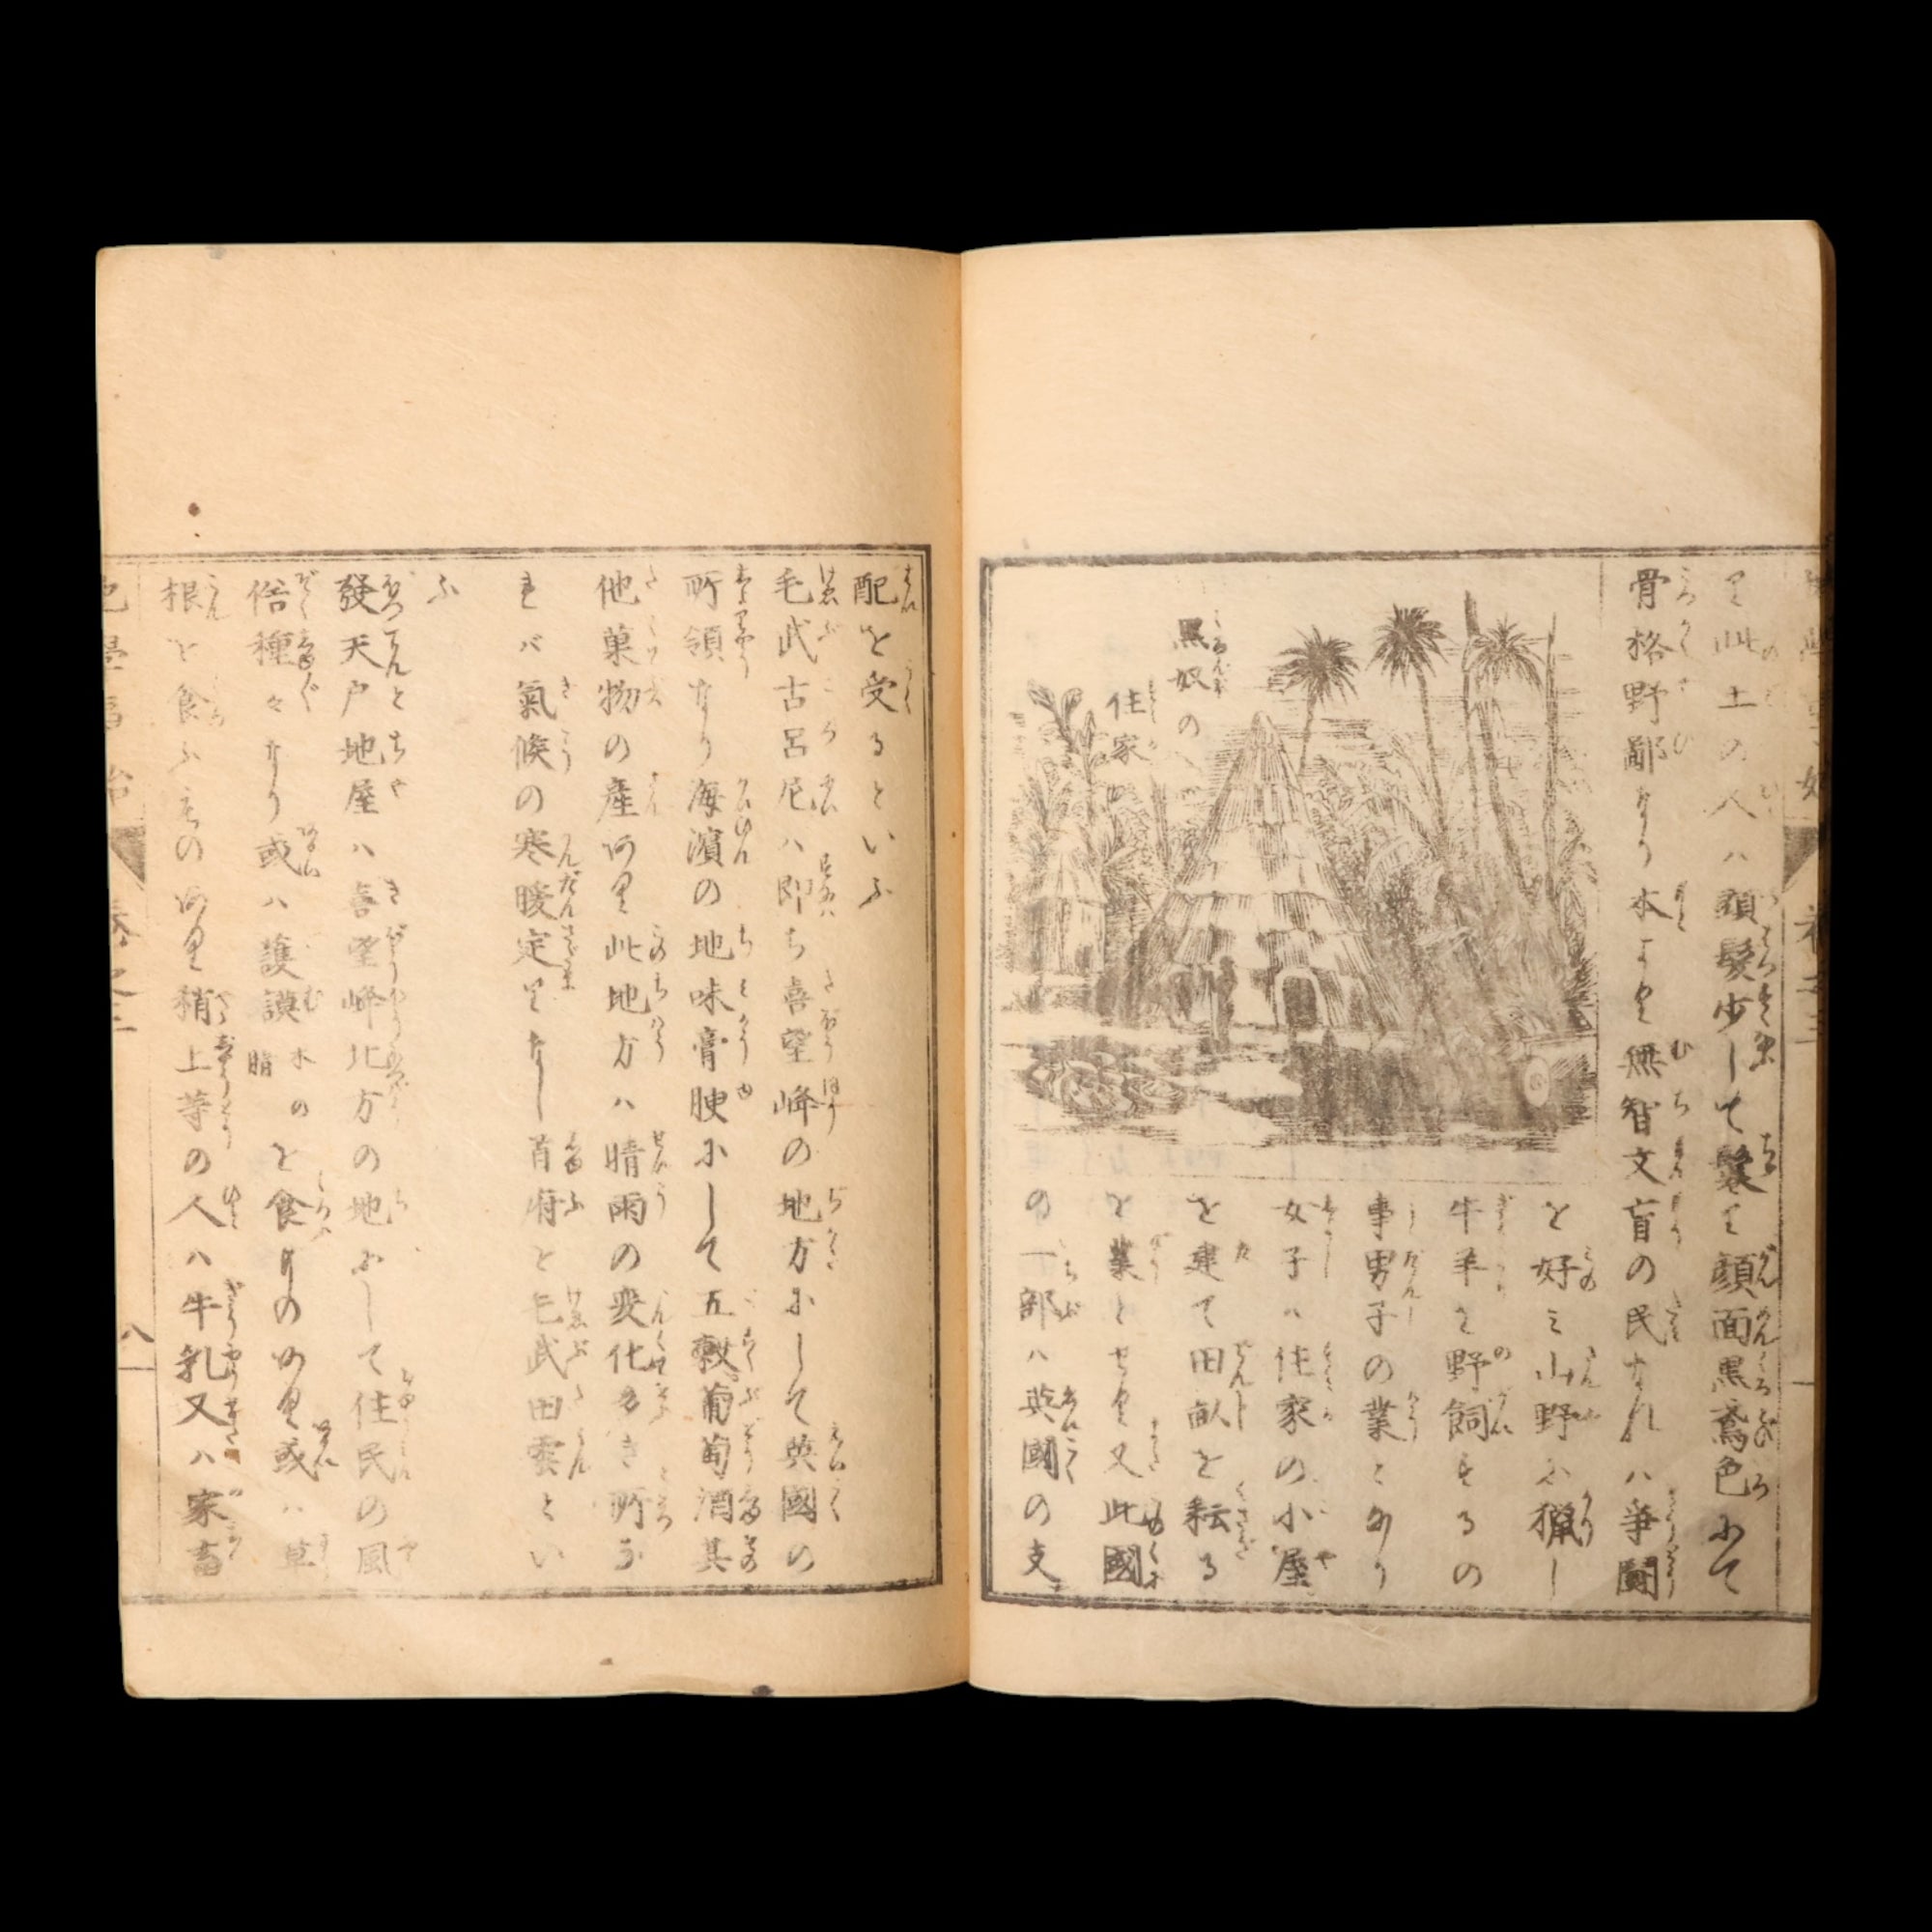 里此土の人ハ頭髪少して鬟く顔面黒鳶色にて
骨格野鄙なり本より無智文盲の民なれハ爭鬪
を好み山野に獵し
牛羊を野飼するの
事男子の業とあり
女子ハ住家の小屋
を建て田畝を耘る
を業とせり又此國
の一部ハ英國の支
黒奴の
住家
配を受るといふ
毛武古呂尼ハ即ち喜望峰の地方にして英國の
所領なり海濱の地味膏腴にして五穀葡萄酒其
他菓物の産あり此地方ハ晴雨の変化多き所な
れバ氣候の寒暖定りなし首府を毛武田雲とい
ふ
發天戸地屋ハ喜望峰北方の地にして住民の風
俗種々なり或ハ護謨木の脂を食なのあり或ハ草
根を食ふものあり稍上等の人ハ牛乳又ハ家畜
八